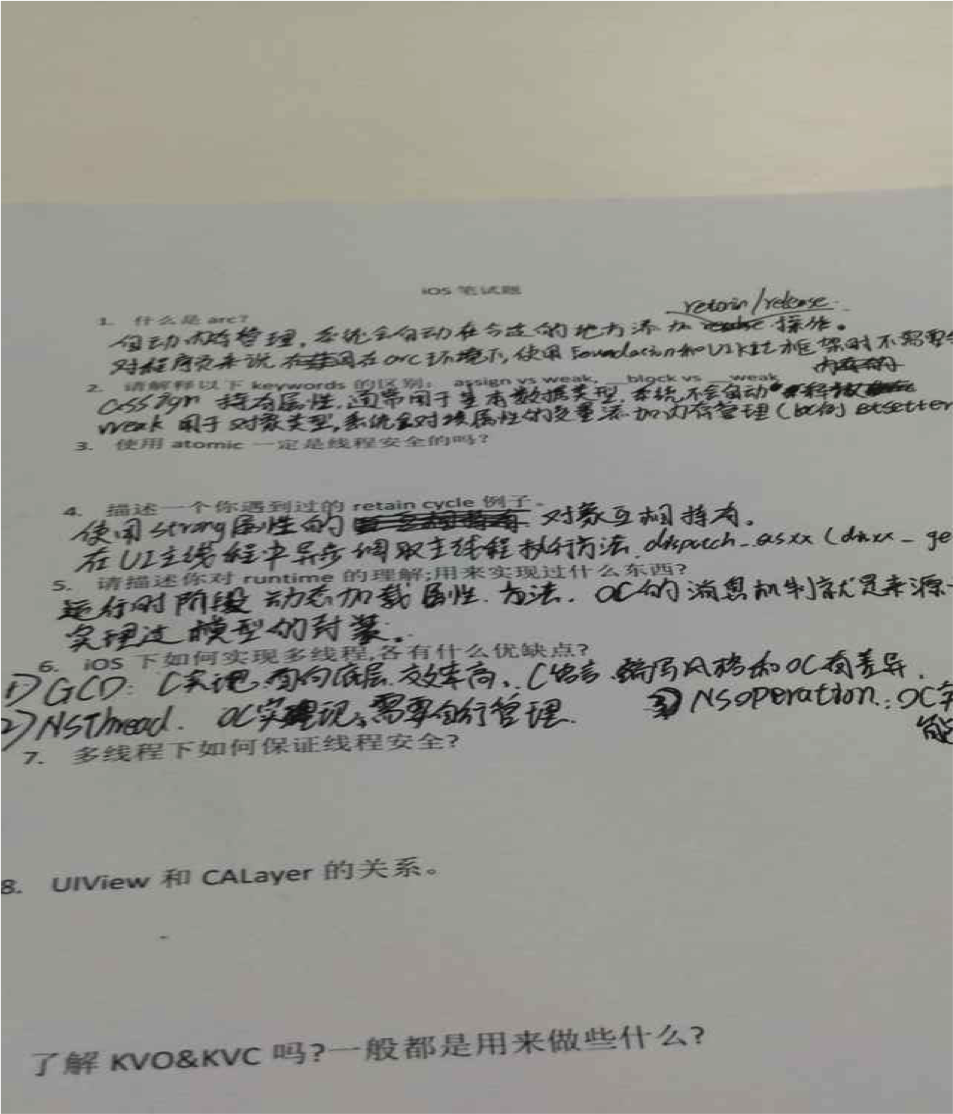 iOS 笔试题
retain/release.
1. 什么是 arc?
自动内存管理,系统会自动在合适的地方添加 操作。
对程序员来说 在arc环境下,使用Foundation和UIKit框架时不需要
2. 请解释以下 keywords 的区别: assign vs weak, __block vs __weak
assign 持有属性,通常用于基本数据类型,系统不会自动释放
weak 用于对象类型,系统会对该属性的变量添加内存管理(比如 setter
3. 使用 atomic 一定是线程安全的吗?
4. 描述一个你遇到过的 retain cycle 例子。
使用strong属性的 对象互相持有。
在UI主线程中异步调取主线程执行方法.
5. 请描述你对 runtime 的理解;用来实现过什么东西?
运行时阶段 动态加载属性.方法. OC的消息机制就是来源
实现过模型的封装。
6. iOS 下如何实现多线程,各有什么优缺点?
1) GCD: C实现.面向底层.效率高. C语言.编写风格和OC有差异.
2) NSThread. OC实现,需要自行管理. 3) NSOperation.: OC实
能
7. 多线程下如何保证线程安全?
8. UIView 和 CALayer 的关系。
了解 KVO&KVC 吗?一般都是用来做些什么?